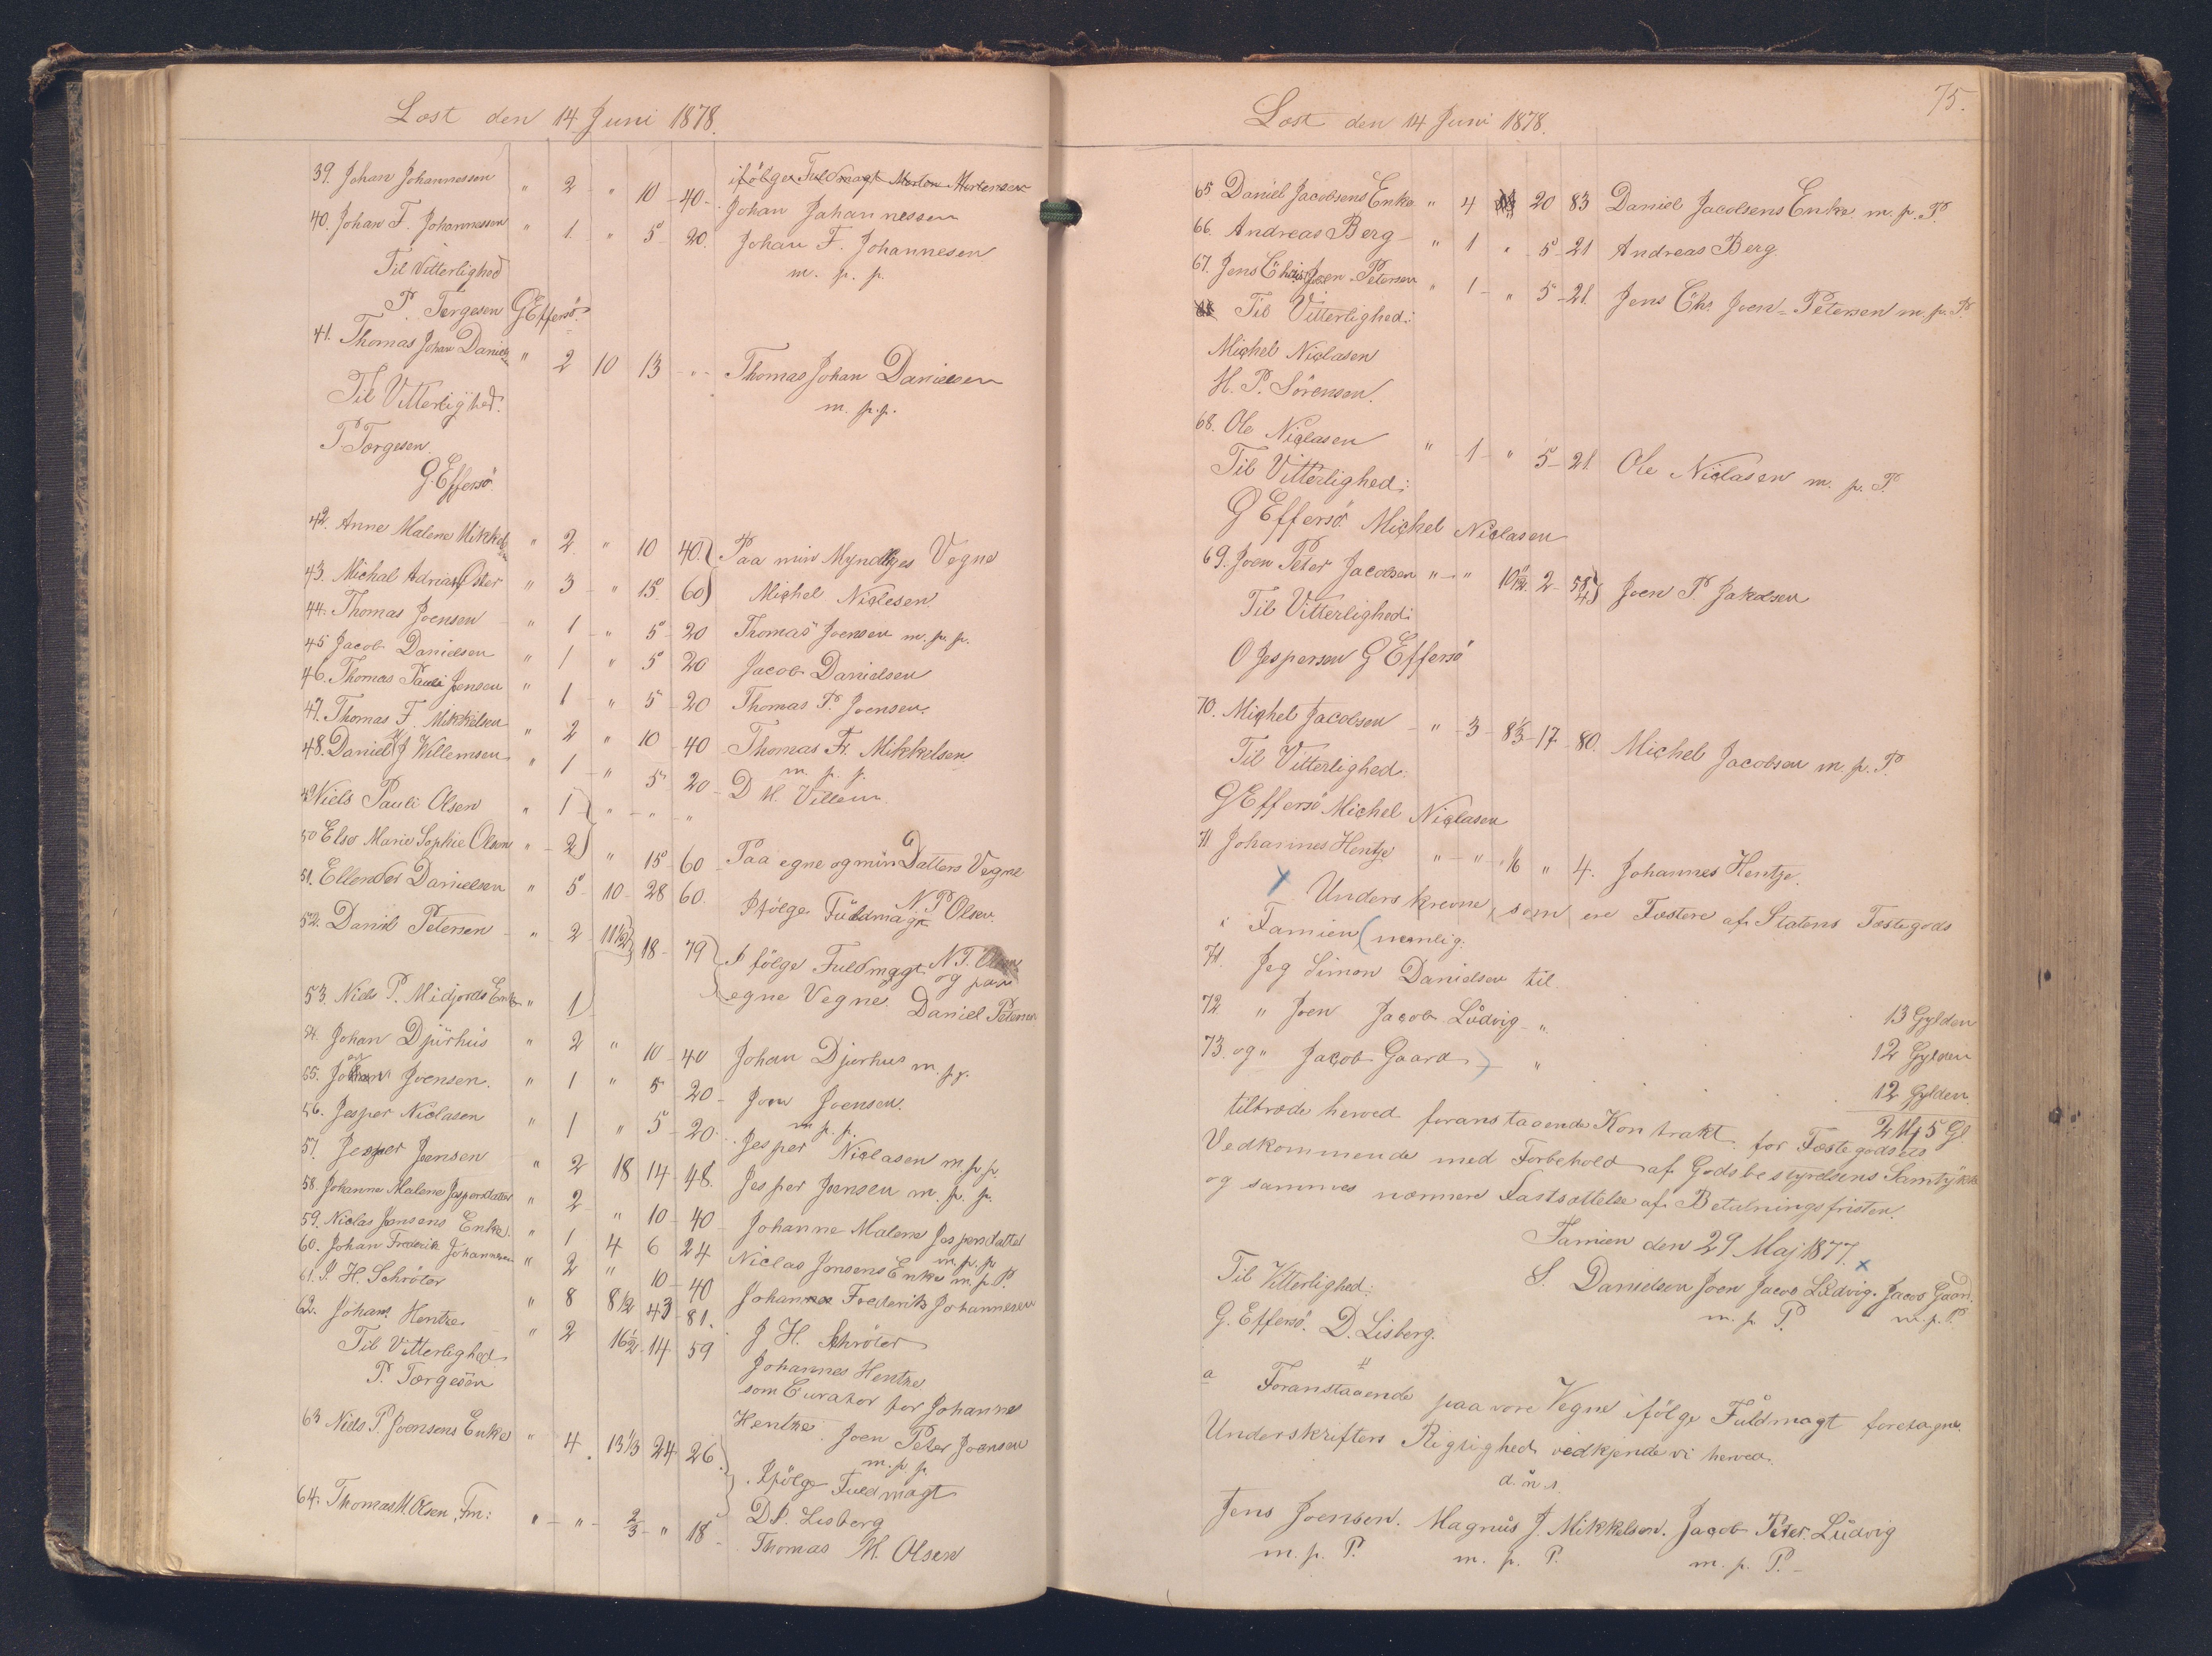 Læst den 14 Juni 1878.
39. Johan Johannessen " 2 " 10 - 40 - ifølge Fuldmagt Morten Mortensen
Johan Johannessen
40. Johan F. Johannessen " 1. " 5 - 20. Johan F. Johannesen
Til Vitterlighed m. p. p.
P. Tørgesen G Effersö.
41. Thomas Johan Daniels " 2 10 13 - " - Thomas Johan Danielsen
Til Vitterlighed. m. p. p.
P. Tørgesen.
G. Effersö.
42. Anne Malene Mikkels " 2 " 10 40. Paa min Myndlges Vegne
43. Michal Adrian Øster " 3 " 15. 60 Michel Niclesen.
44. Thomas Joensen " 1 " 5 - 20 Thomas Joensen m. p. p.
45 Jacob Danielsen " 1 " 5 20 Jacob Danielsen
46. Thomas Pauli Jensen " 1 - " 5 - 20 Thomas P. Joensen.
47. Thomas F. Mikkelsen " 2 " 10 - 40 Thomas Fr. Mikkelsen
m. p. p.
48. Daniel H J Willemsen " 1 - " 5 20 - D H. Villem
49 Niels Pauli Olsen " 1 " - " - "
50 Else Marie Sophie Olsens " - 2 " 15 60 Paa egne og min Datters Vegne
N. P Olsen.
51. Ellender Danielsen " 5 - 10 - 28 60. Ifølge Fuldmagt
N. P. Olsen
52. Daniel Petersen " 2 11 1/2 18 - 79 I følge Fuldmagt og paa
egne Vegne. Daniel Petersen
53. Niels P. Midjords Enke " 1
54. Johan Djúrhús " 2 " 10 - 40 Johan Djurhus m. p. p.
55. Johan Joensen. " 1 " 5 20 - Joen Joensen.
m. p. p.
56. Jesper Niclasen " 1 " 5 - 20. Jesper Niclasen m. p. p.
57. Jesper Jensen " 2 18 14 - 48. Jesper Jensen m. p. p.
58. Johanne Malene Jespersdatter " 2 " 10 - 40 Johanne Malene Jespersdatter
m. p. p.
59. Niclas Jensens Enke. " 1 4 6 24 Niclas Jensens Enke m. p. P.
60. Johan Frederik Johannesen " 2 " 10 - 40 Johannes Frederik Johannesen
61. J. H. Schröter " 8 8 1/2 43 - 81. J H. Schröter
62. Johans Hentze. " 2 16 1/2 14 59 Johannes Hentze
Til Vitterlighed som Curator for Johannes
P. Tørgesen Hentze. Joen Peter Joensen
m. p. p.
63 Niels P. Joensens Enke " 4. 13 1/3 24 26. Ifølge Fuldmagt
D. P. Lisberg
64. Thomas M. Olsen, Fm: " - " - 2/3 - " 18 - Thomas M. Olsen
75.
Læst den 14 Juni 1878.
65 Daniel Jacobsens Enke " 4 20 83 Daniel Jacobsens Enke. m. p. P.
66. Andreas Berg - " 1 " 5 - 21 Andreas Berg.
67. Jens Christ Joen-Petersen " 1 - " 5 - 21. Jens Chr. Joen-Petersen m. p. P.
Til Vitterlighed:
Michel Niclasen
H. P. Sörensen.
68. Ole Niclasen " 1 - " 5 - 21. Ole Niclasen m. p. P.
Til Vitterlighed:
G Effersö. Michel Niclasen
69. Joen Peter Jacobsen " - " 10 11/12 2 - 58 Joen P. Jakobsen
Til Vitterlighed:
O Jespersen G Effersö
70. Michel Jacobsen - " - 3 - 8 1/3 - 17 - 80. Michel Jacobsen m. p. P.
Til Vitterlighed:
G Effersö Michel Niclasen
71 Johannes Hentze " - " - 1/6 " 4. Johannes Hentze.
Underskrevne, som ere Fæstere af Statens Fæstegods
i Famien (nemlig:
71. Jeg Simon Danielsen til 13 Gylden
72 " Joen Jacob Lüdvig - " 12 Gylden
73. og " Jacob Gaard) " 12 Gylden.
2 M 5 Gl.
tiltræde herved foranstaaende Kontrakt for Fæstegodsets
Vedkommende med Forbehold af Godsbestyrelsens Samtykke
og sammes nærmere Fastsættelse af Betalningsfristen.
Famien den 29 Maj 1877.
S. Danielsen Joen Jacob Lüdvig. Jacob Gaard.
m. p. P. m. p. P.
Til Vitterlighed:
G. Effersö. D. Lisberg.
a Foranstaaende paa vore Vegne ifølge Fuldmagt foretagne
Underskrifters Rigtighed vedkjende vi herved.
d. u. s.
Jens Joensen. Magnus J. Mikkelsen. Jacob Peter Lüdvig
m. p. P. m. p. P. m. p. P. -